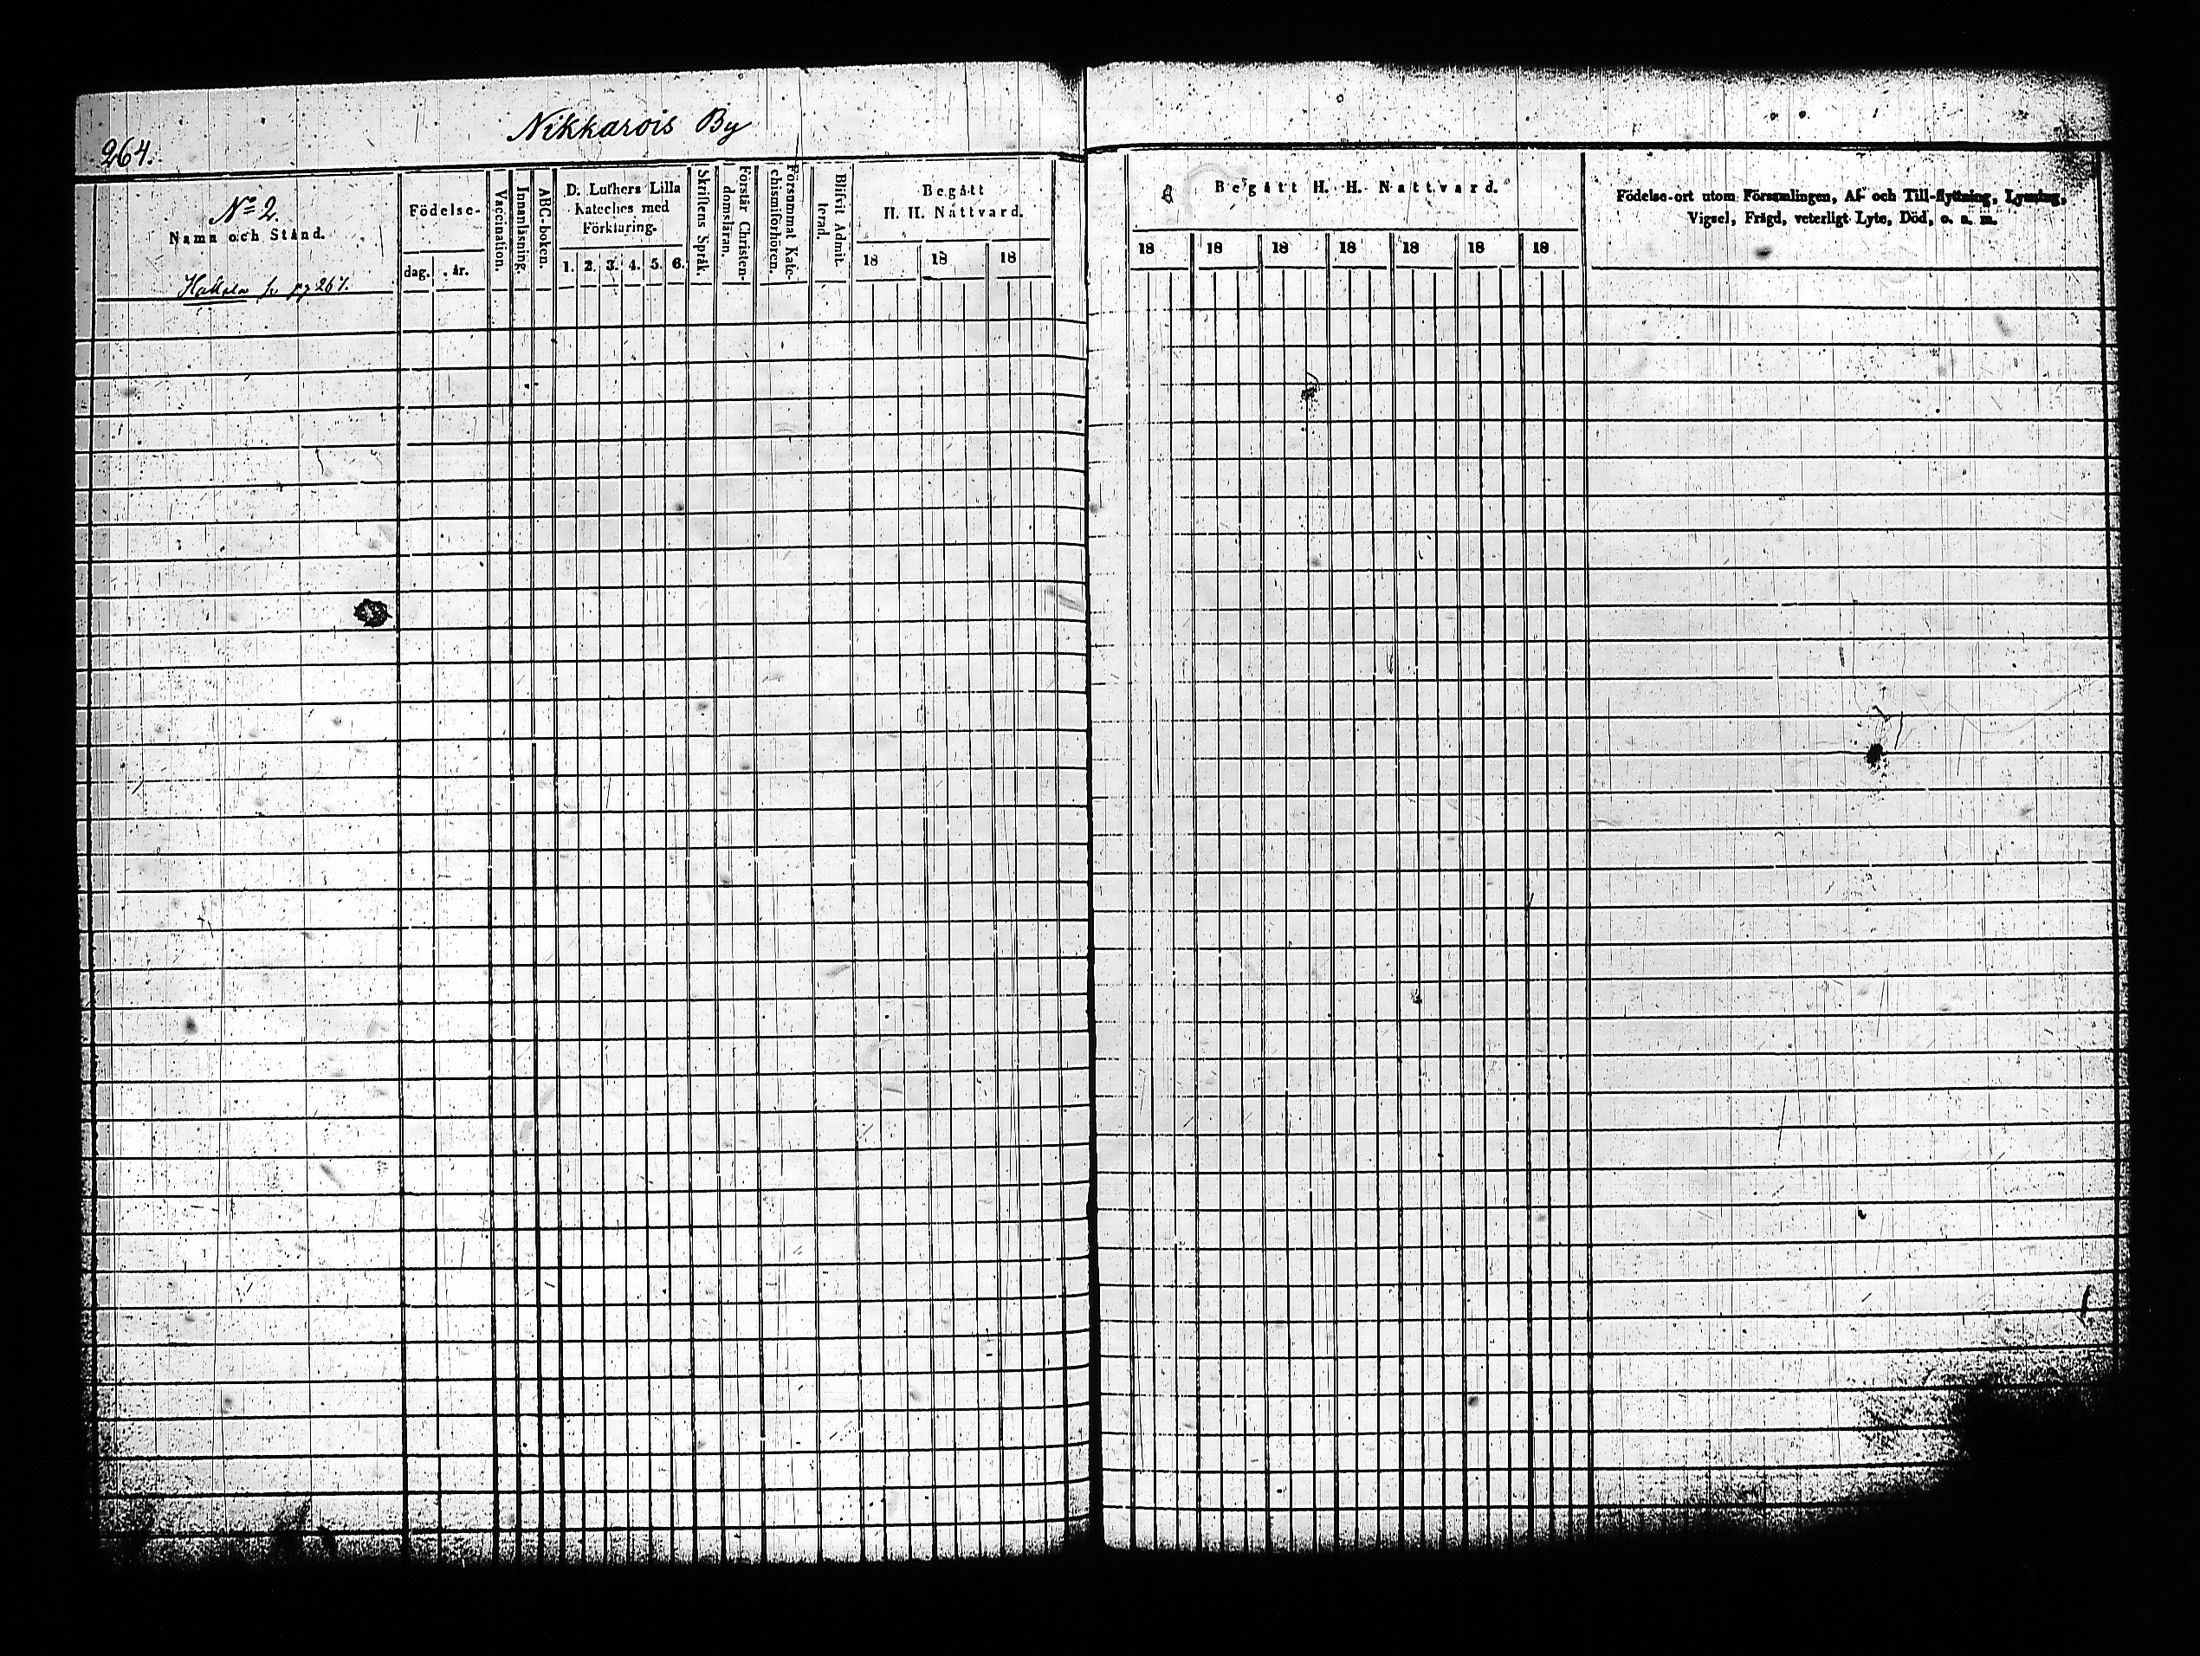 264.
Nikkarois By
N:o 2.
Namn och Stånd.
Födelse-
dag. år.
Vaccination.
Innanläsning.
ABC-boken.
D. Luthers Lilla
Kateches med
Förklaring.
1. 2. 3. 4. 5. 6.
Skriftens Språk.
Förstår Christen-
domsläran.
Försummat Kate-
chismiförhören.
Blifvit Admit-
terad.
Begått
H. H. Nattvard.
18 18 18
pg 267.
Begått H. H. Nattvard.
18 18 18 18 18 18 18
Födelse-ort utom Församlingen, Af- och Till-flyttning, Lysning,
Vigsel, Frägd, veterligt Lyte, Död, o. s. m.